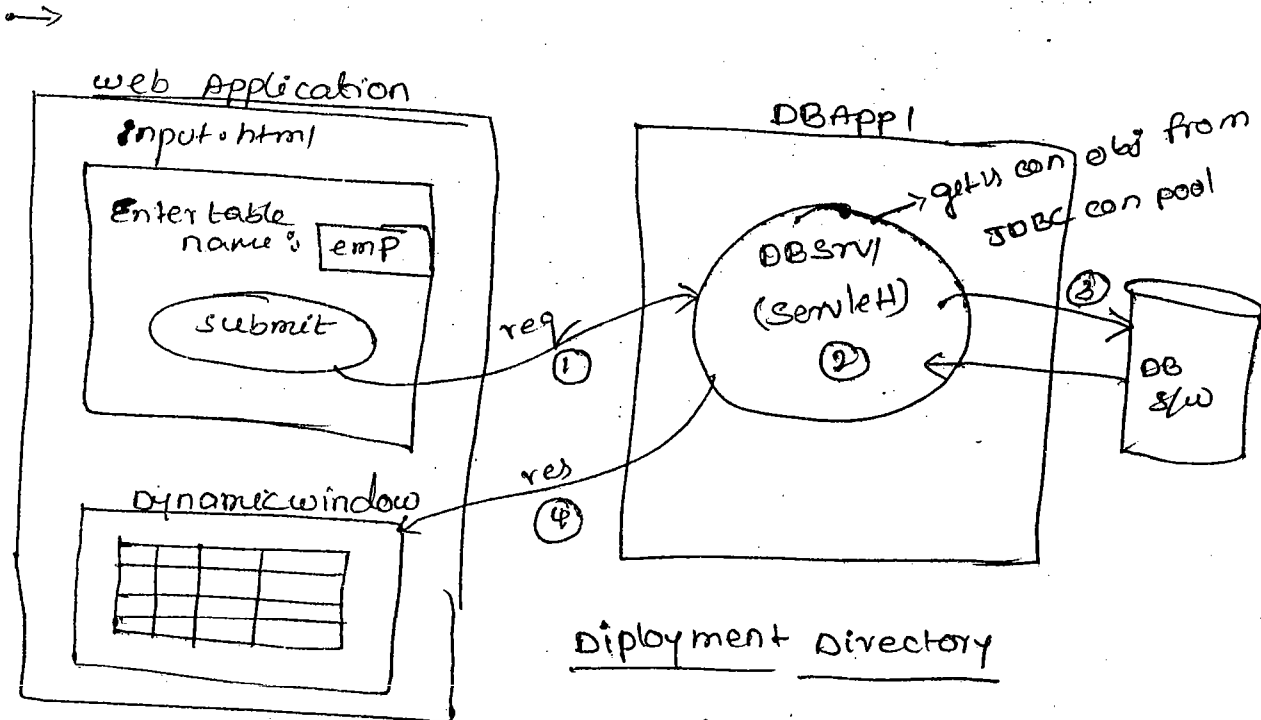 web Application
input.html
Enter table
name: emp
submit
req
①
DBApp1
gets con obj from
JDBC con pool
DBSrv1
(Servlet)
②
③
DB
S/W
res
④
Dynamicwindow
Diployment Directory